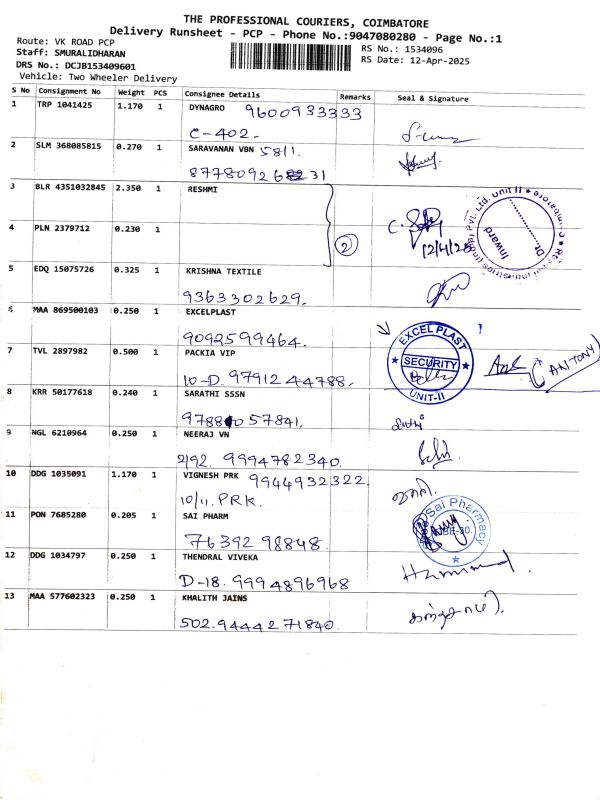 THE PROFESSIONAL COURIERS, COIMBATORE
Delivery Runsheet - PCP - Phone No.:9047080280 - Page No.:1
Route: VK ROAD PCP
Staff: SMURALIDHARAN
DRS No.: DCJB153409601
Vehicle: Two Wheeler Delivery
RS No.: 1534096
RS Date: 12-Apr-2025
S No Consignment No Weight PCS Consignee Details Remarks Seal & Signature
1 TRP 1041425 1.170 1 DYNAGRO 9600933333
C-402.
2 SLM 368085815 0.270 1 SARAVANAN VBN 58/1
3 BLR 4351032845 2.350 1 RESHMI
4 PLN 2379712 0.230 1
2
12/4/25
Inward
5 EDQ 15075726 0.325 1 KRISHNA TEXTILE
9363302629.
6 MAA 869500103 0.250 1 EXCELPLAST
9092599464.
EXCEL PLAST
SECURITY
UNIT-II
(ANTONY)
7 TVL 2897982 0.500 1 PACKIA VIP
10-D. 9791244788.
8 KRR 50177618 0.240 1 SARATHI SSSN
9 NGL 6210964 0.250 1 NEERAJ VN
2/92. 9994782340.
10 DDG 1035091 1.170 1 VIGNESH PRK 9944932322.
10/11. PRK.
11 PON 7685280 0.205 1 SAI PHARM
76392 98848.
Sai Pharmacy
12 DDG 1034797 0.250 1 THENDRAL VIVEKA
D-18. 9994896968
13 MAA 577602323 0.250 1 KHALITH JAINS
502. 94442 71840.